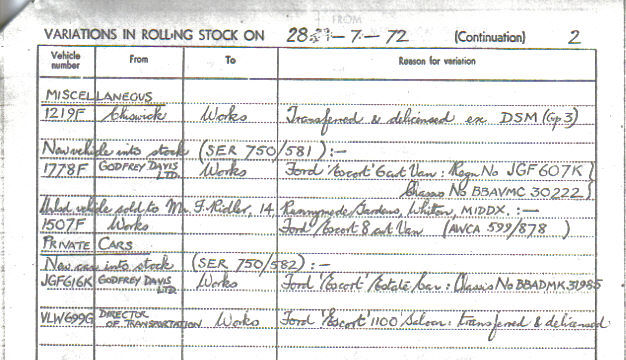 FROM
VARIATIONS IN ROLLING STOCK ON 28 - 7 - 72 (Continuation) 2
Vehicle number From To Reason for variation
MISCELLANEOUS
1219F Chiswick Works Transferred & delicensed ex DSM (Gp 3)
New vehicle into stock (SER 750/581) :-
1778F GODFREY DAVIS LTD. Works Ford 'Escort' 6cwt Van : Regn No JGF 607K }
Chassis No BBAVMC 30222 }
Used vehicle sold to Mr. F. Ridler, 14, Runnymede Gardens, Whitton, MIDDX. :-
1507F Works Ford 'Escort' 8cwt Van (AWCA 599/878)
PRIVATE CARS
New cars into stock (SER 750/582) :-
JGF616K GODFREY DAVIS LTD. Works Ford 'Escort' Estate Car : Chassis No BBADMK 31985
VLW699G DIRECTOR OF TRANSPORTATION Works Ford 'Escort' 1100 Saloon : transferred & delicensed